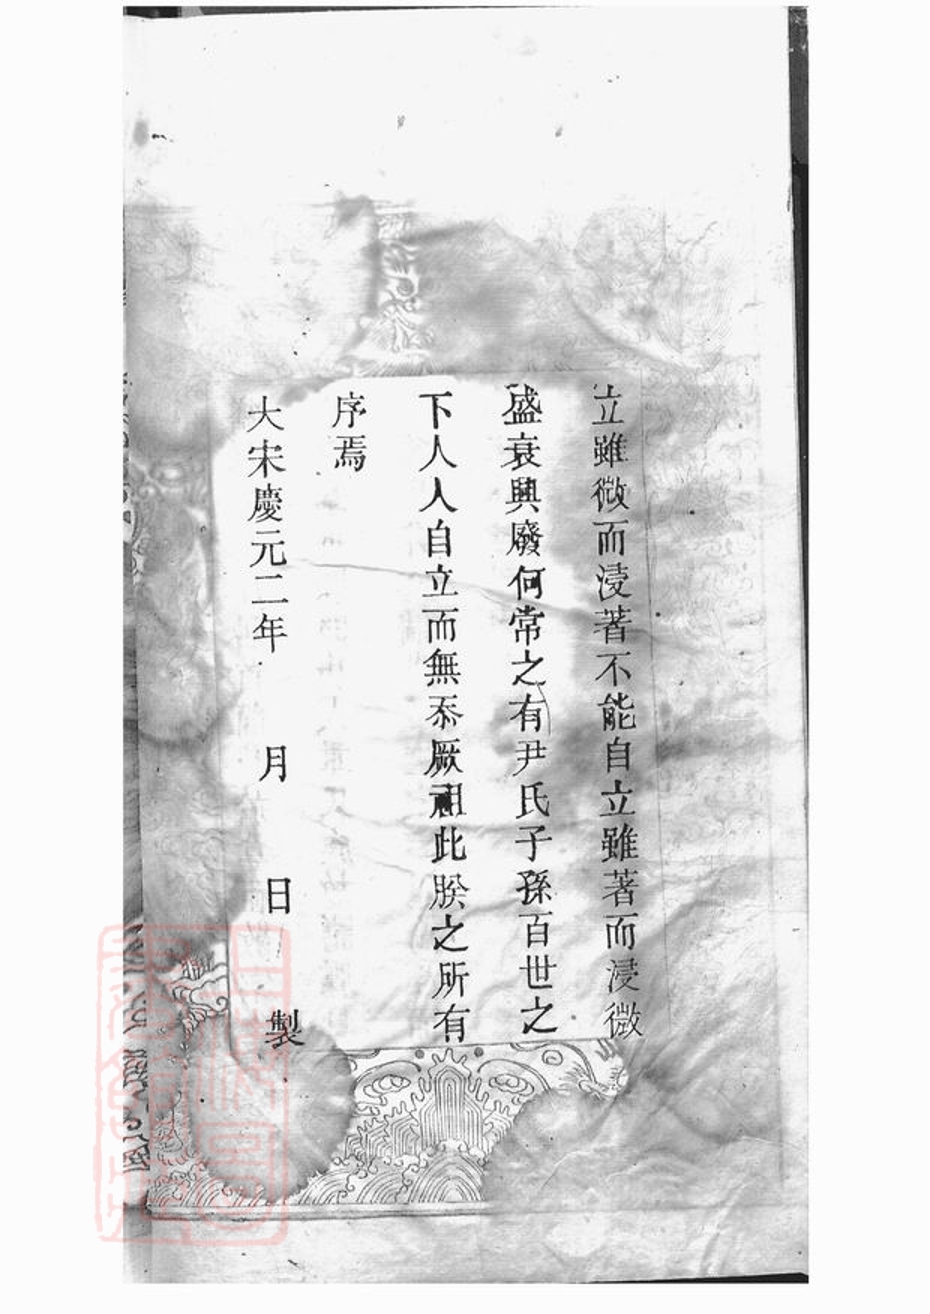 立雖微而浸著不能自立雖著而浸微
盛衰興廢何常之有尹氏子孫百世之
下人人自立而無忝厥祖此朕之所有
序焉
大宋慶元二年　月　日　製